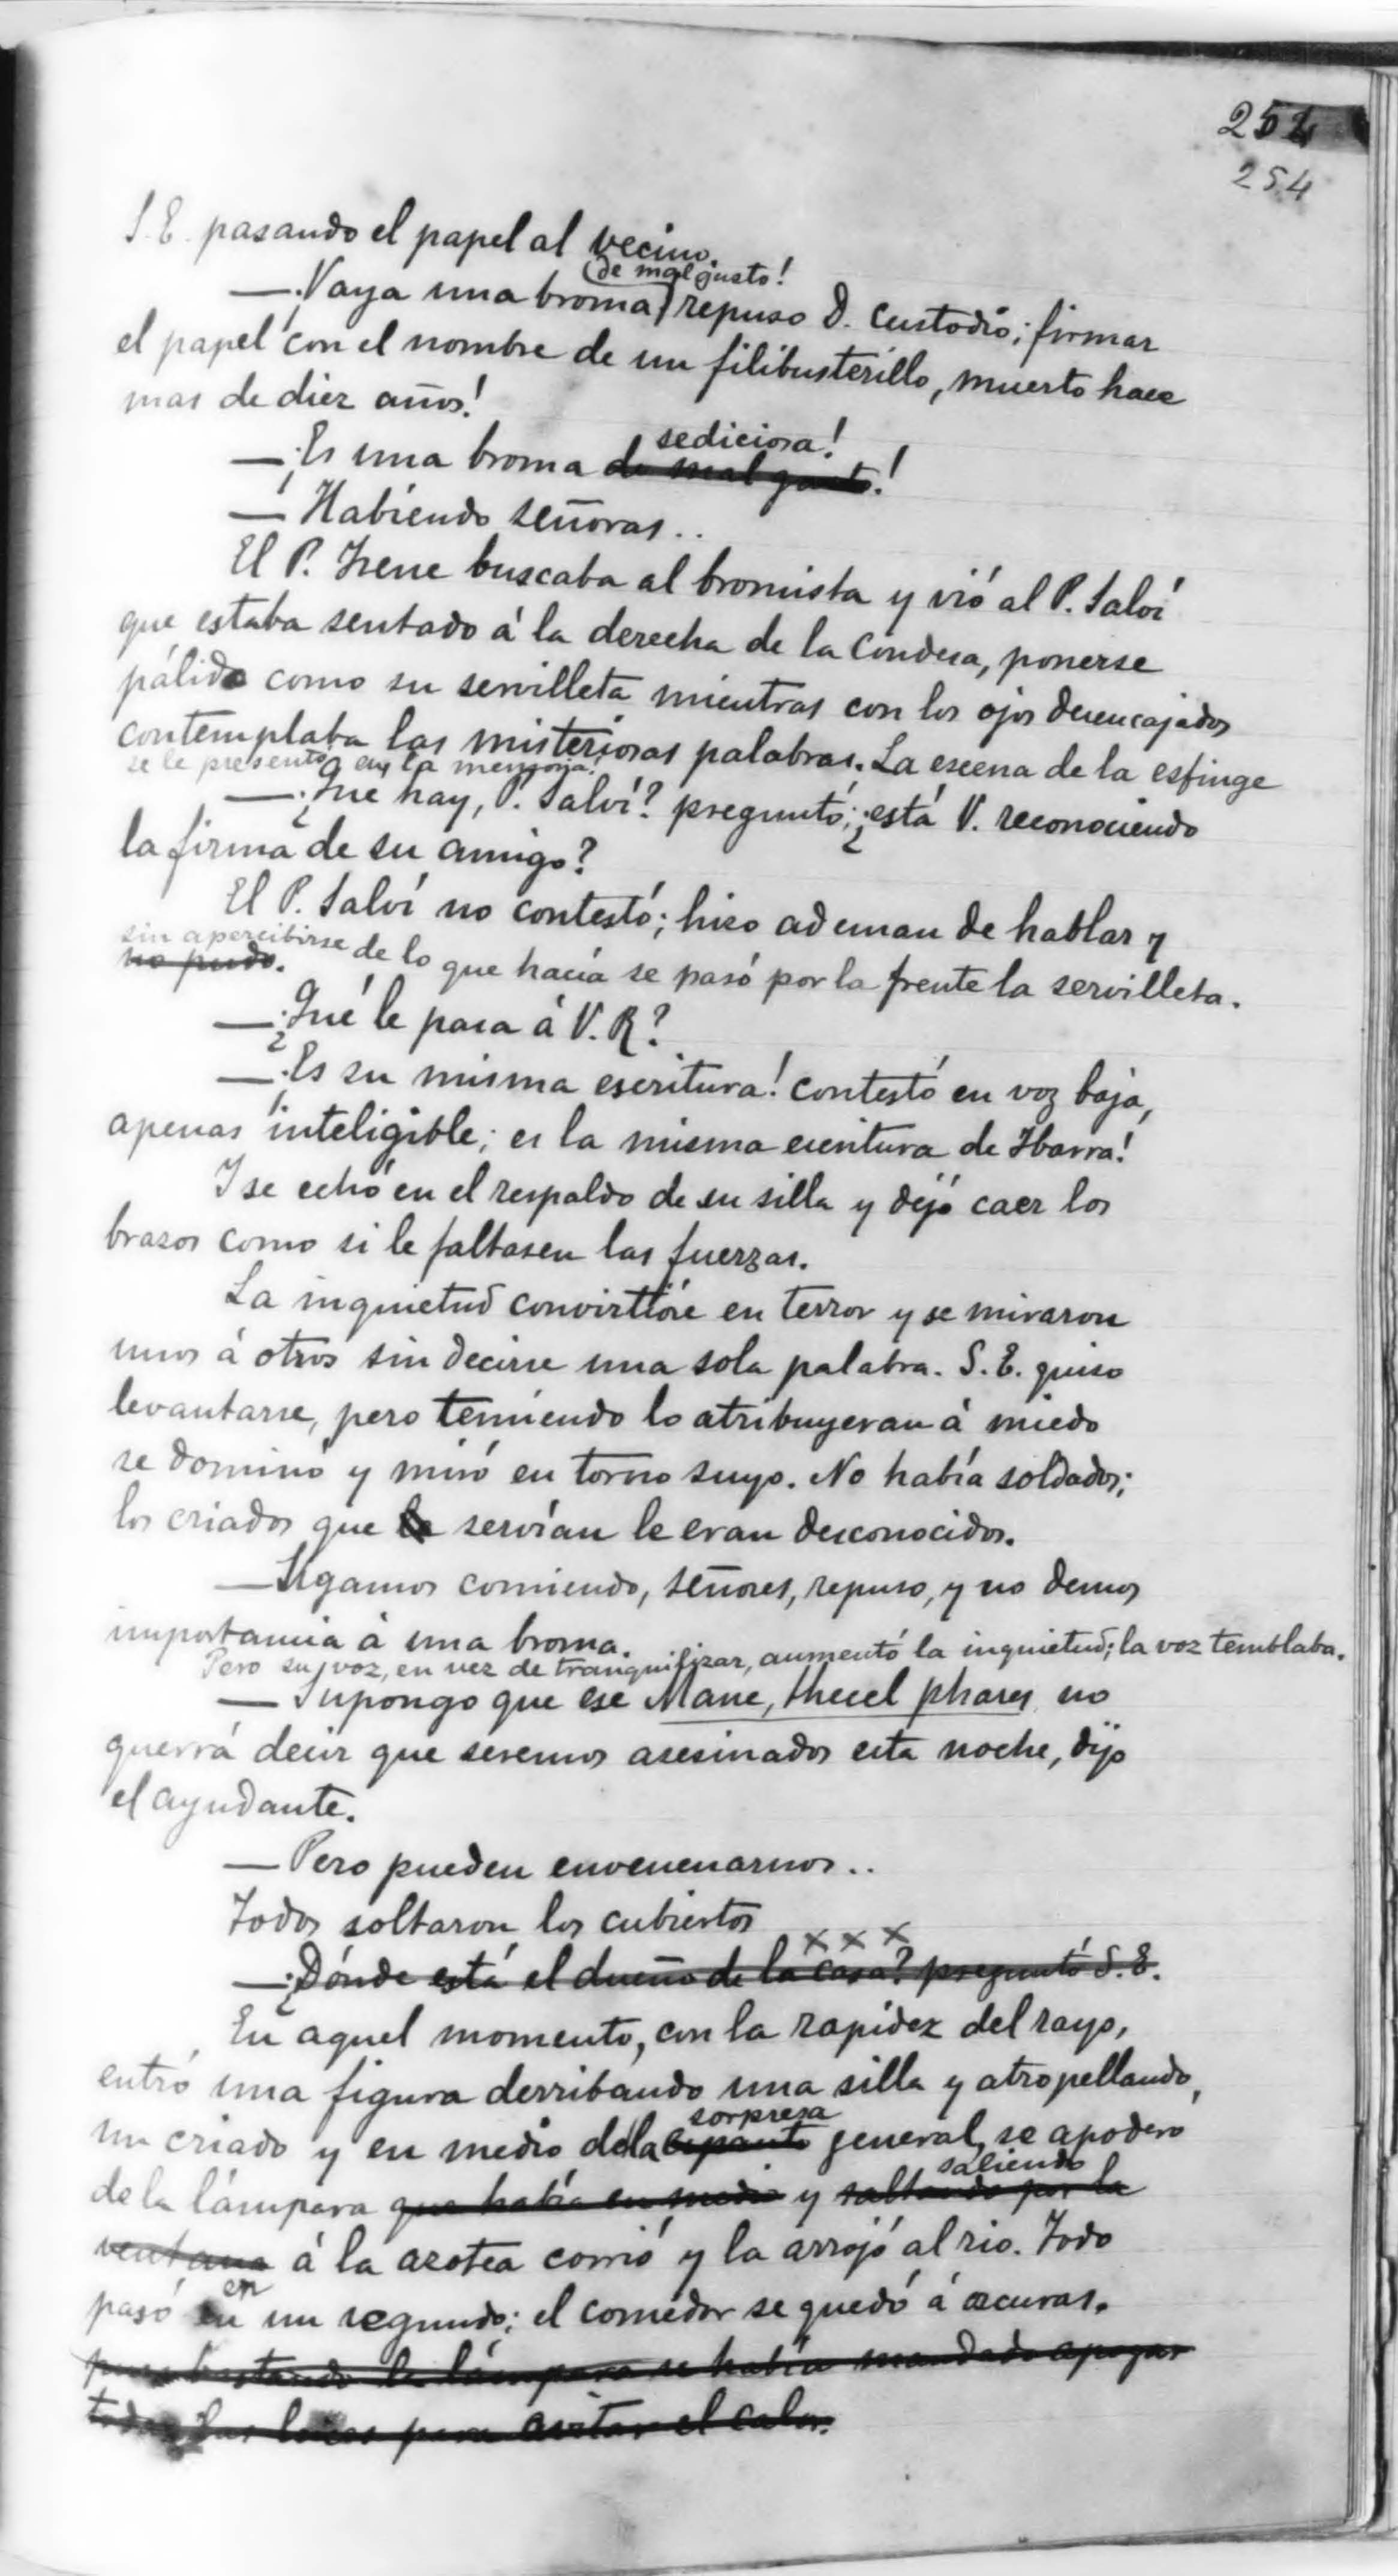 252
254
S. E. pasando el papel al vecino.
de mal gusto!
—¡Vaya una broma repuso D. Custodio; firmar
el papel con el nombre de un filibusterillo, muerto hace
mas de diez años!
sediciosa!
—¡Es una broma de mal gusto!
—Habiendo señoras..
El P. Irene buscaba al bromista y vió al P. Salví
que estaba sentado á la derecha de la Condesa, ponerse
pálido como su servilleta mientras con los ojos desencajados
contemplaba las misteriosas palabras. La escena de la esfinge
se le presentó en la memoria!
—¿Que hay, P. Salví? preguntó; ¿está V. reconociendo
la firma de su amigo?
El P. Salví no contestó; hizo ademan de hablar y
sin apercibirse de lo que hacía se pasó por la frente la servilleta.
no pudo.
—¿Qué le pasa á V. R?
—¡Es su misma escritura! contestó en voz baja,
apenas inteligible; es la misma escritura de Ibarra!
Y se echó en el respaldo de su silla y dejó caer los
brazos como si le faltasen las fuerzas.
La inquietud convirtióse en terror y se miraron
unos á otros sin decirse una sola palabra. S. E. quiso
levantarse, pero temiendo lo atribuyeran á miedo
se dominó y miró en torno suyo. No había soldados;
los criados que le servían le eran desconocidos.
—Sigamos comiendo, señores, repuso, y no demos
importancia á una broma.
Pero su voz, en vez de tranquilizar, aumentó la inquietud; la voz temblaba.
—Supongo que ese Mane, thecel phares no
querrá decir que seremos asesinados esta noche, dijo
el ayudante.
—Pero pueden envenenarnos..
Todos soltaron los cubiertos
x x x
—¿Dónde está el dueño de la casa? preguntó S. E.
En aquel momento, con la rapidez del rayo,
entró una figura derribando una silla y atropellando
sorpresa
un criado y en medio de la espanto general, se apoderó
saliendo
de la lámpara que había en medio y saltando por la
ventana á la azotea corrió y la arrojó al rio. Todo
en
pasó en un segundo; el comedor se quedó á oscuras.
pues bastando la lámpara se había mandado apagar
todas las luces para evitar el calor.